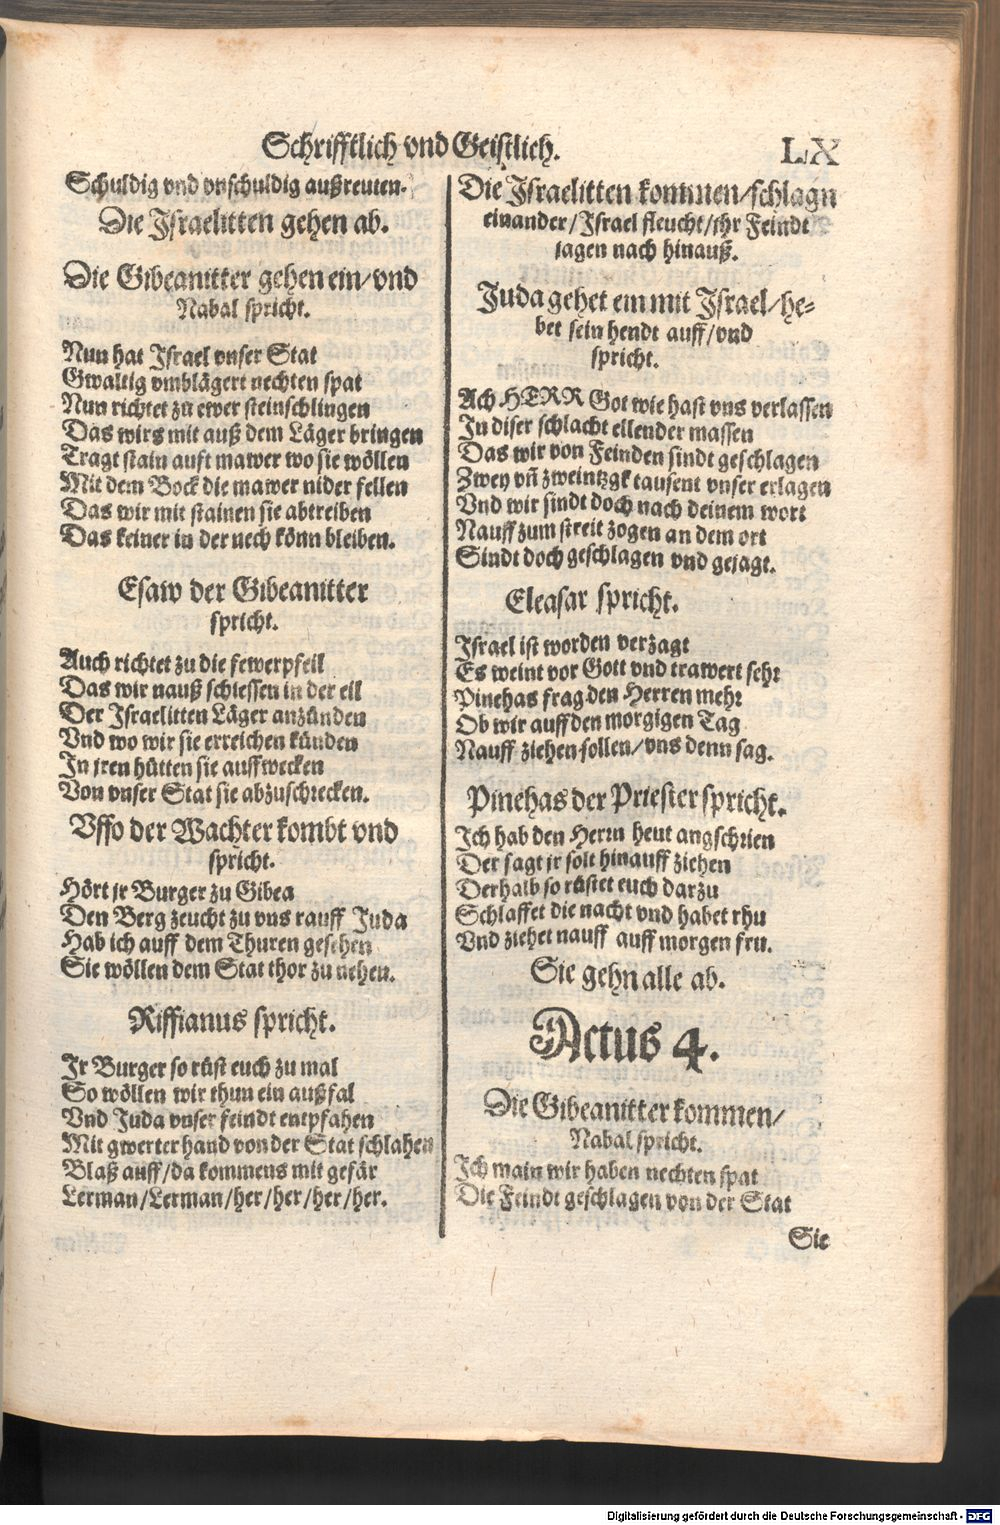 Schrifftlich vnd Geistlich. LX
Schuldig vnd vnschuldig außreuten.
Die Israelitten gehen ab.
Die Gibeanitter gehen ein/vnd
Nabal spricht.
Nun hat Israel vnser Stat
Gwaltig vmblägert nechten spat
Nun richtet zu ewer steinschlingen
Das wirs mit auß dem Läger bringen
Tragt stain auft mawer wo sie wöllen
Mit dem Bock die mawer nider fellen
Das wir mit stainen sie abtreiben
Das keiner in der nech könn bleiben.
Esaw der Gibeanitter
spricht.
Auch richtet zu die fewerpfeil
Das wir nauß schiessen in der eil
Der Israelitten Läger anzünden
Vnd wo wir sie erreichen künden
In jren hütten sie auffwecken
Von vnser Stat sie abzuschrecken.
Vffo der Wachter kombt vnd
spricht.
Hört jr Burger zu Gibea
Den Berg zeucht zu vns rauff Juda
Hab ich auff dem Thuren gesehen
Sie wöllen dem Stat thor zu nehen.
Riffianus spricht.
Jr Burger so rüst euch zu mal
So wöllen wir thun ein außfal
Vnd Juda vnser feindt entpfahen
Mit gwerter hand von der Stat schlahen
Blaß auff/da kommens mit gefär
Lerman/Lerman/her/her/her/her.
Die Israelitten kommen/schlagn
einander/Israel fleucht/ihr Feindt
jagen nach hinauß.
Juda gehet ein mit Israel/he-
bet sein hendt auff/vnd
spricht.
Ach HERR Got wie hast vns verlassen
In diser schlacht ellender massen
Das wir von Feinden sindt geschlagen
Zwey vñ zweintzgk tausent vnser erlagen
Vnd wir sindt doch nach deinem wort
Nauff zum streit zogen an dem ort
Sindt doch geschlagen vnd gejagt.
Eleasar spricht.
Israel ist worden verzagt
Es weint vor Gott vnd trawert sehr
Pinehas frag den Herren mehr
Ob wir auff den morgigen Tag
Nauff ziehen sollen/vns denn sag.
Pinehas der Priester spricht.
Ich hab den Herrn heut angschrien
Der sagt jr solt hinauff ziehen
Derhalb so rüstet euch darzu
Schlaffet die nacht vnd habet rhu
Vnd ziehet nauff auff morgen fru.
Sie gehn alle ab.
Actus 4.
Die Gibeanitter kommen/
Nabal spricht.
Ich main wir haben nechten spat
Die Feindt geschlagen von der Stat
Sie
Digitalisierung gefördert durch die Deutsche Forschungsgemeinschaft - DFG